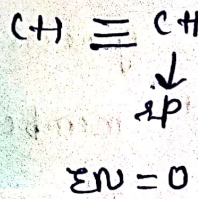 CH ≡ CH
↓
sp
EN = 0